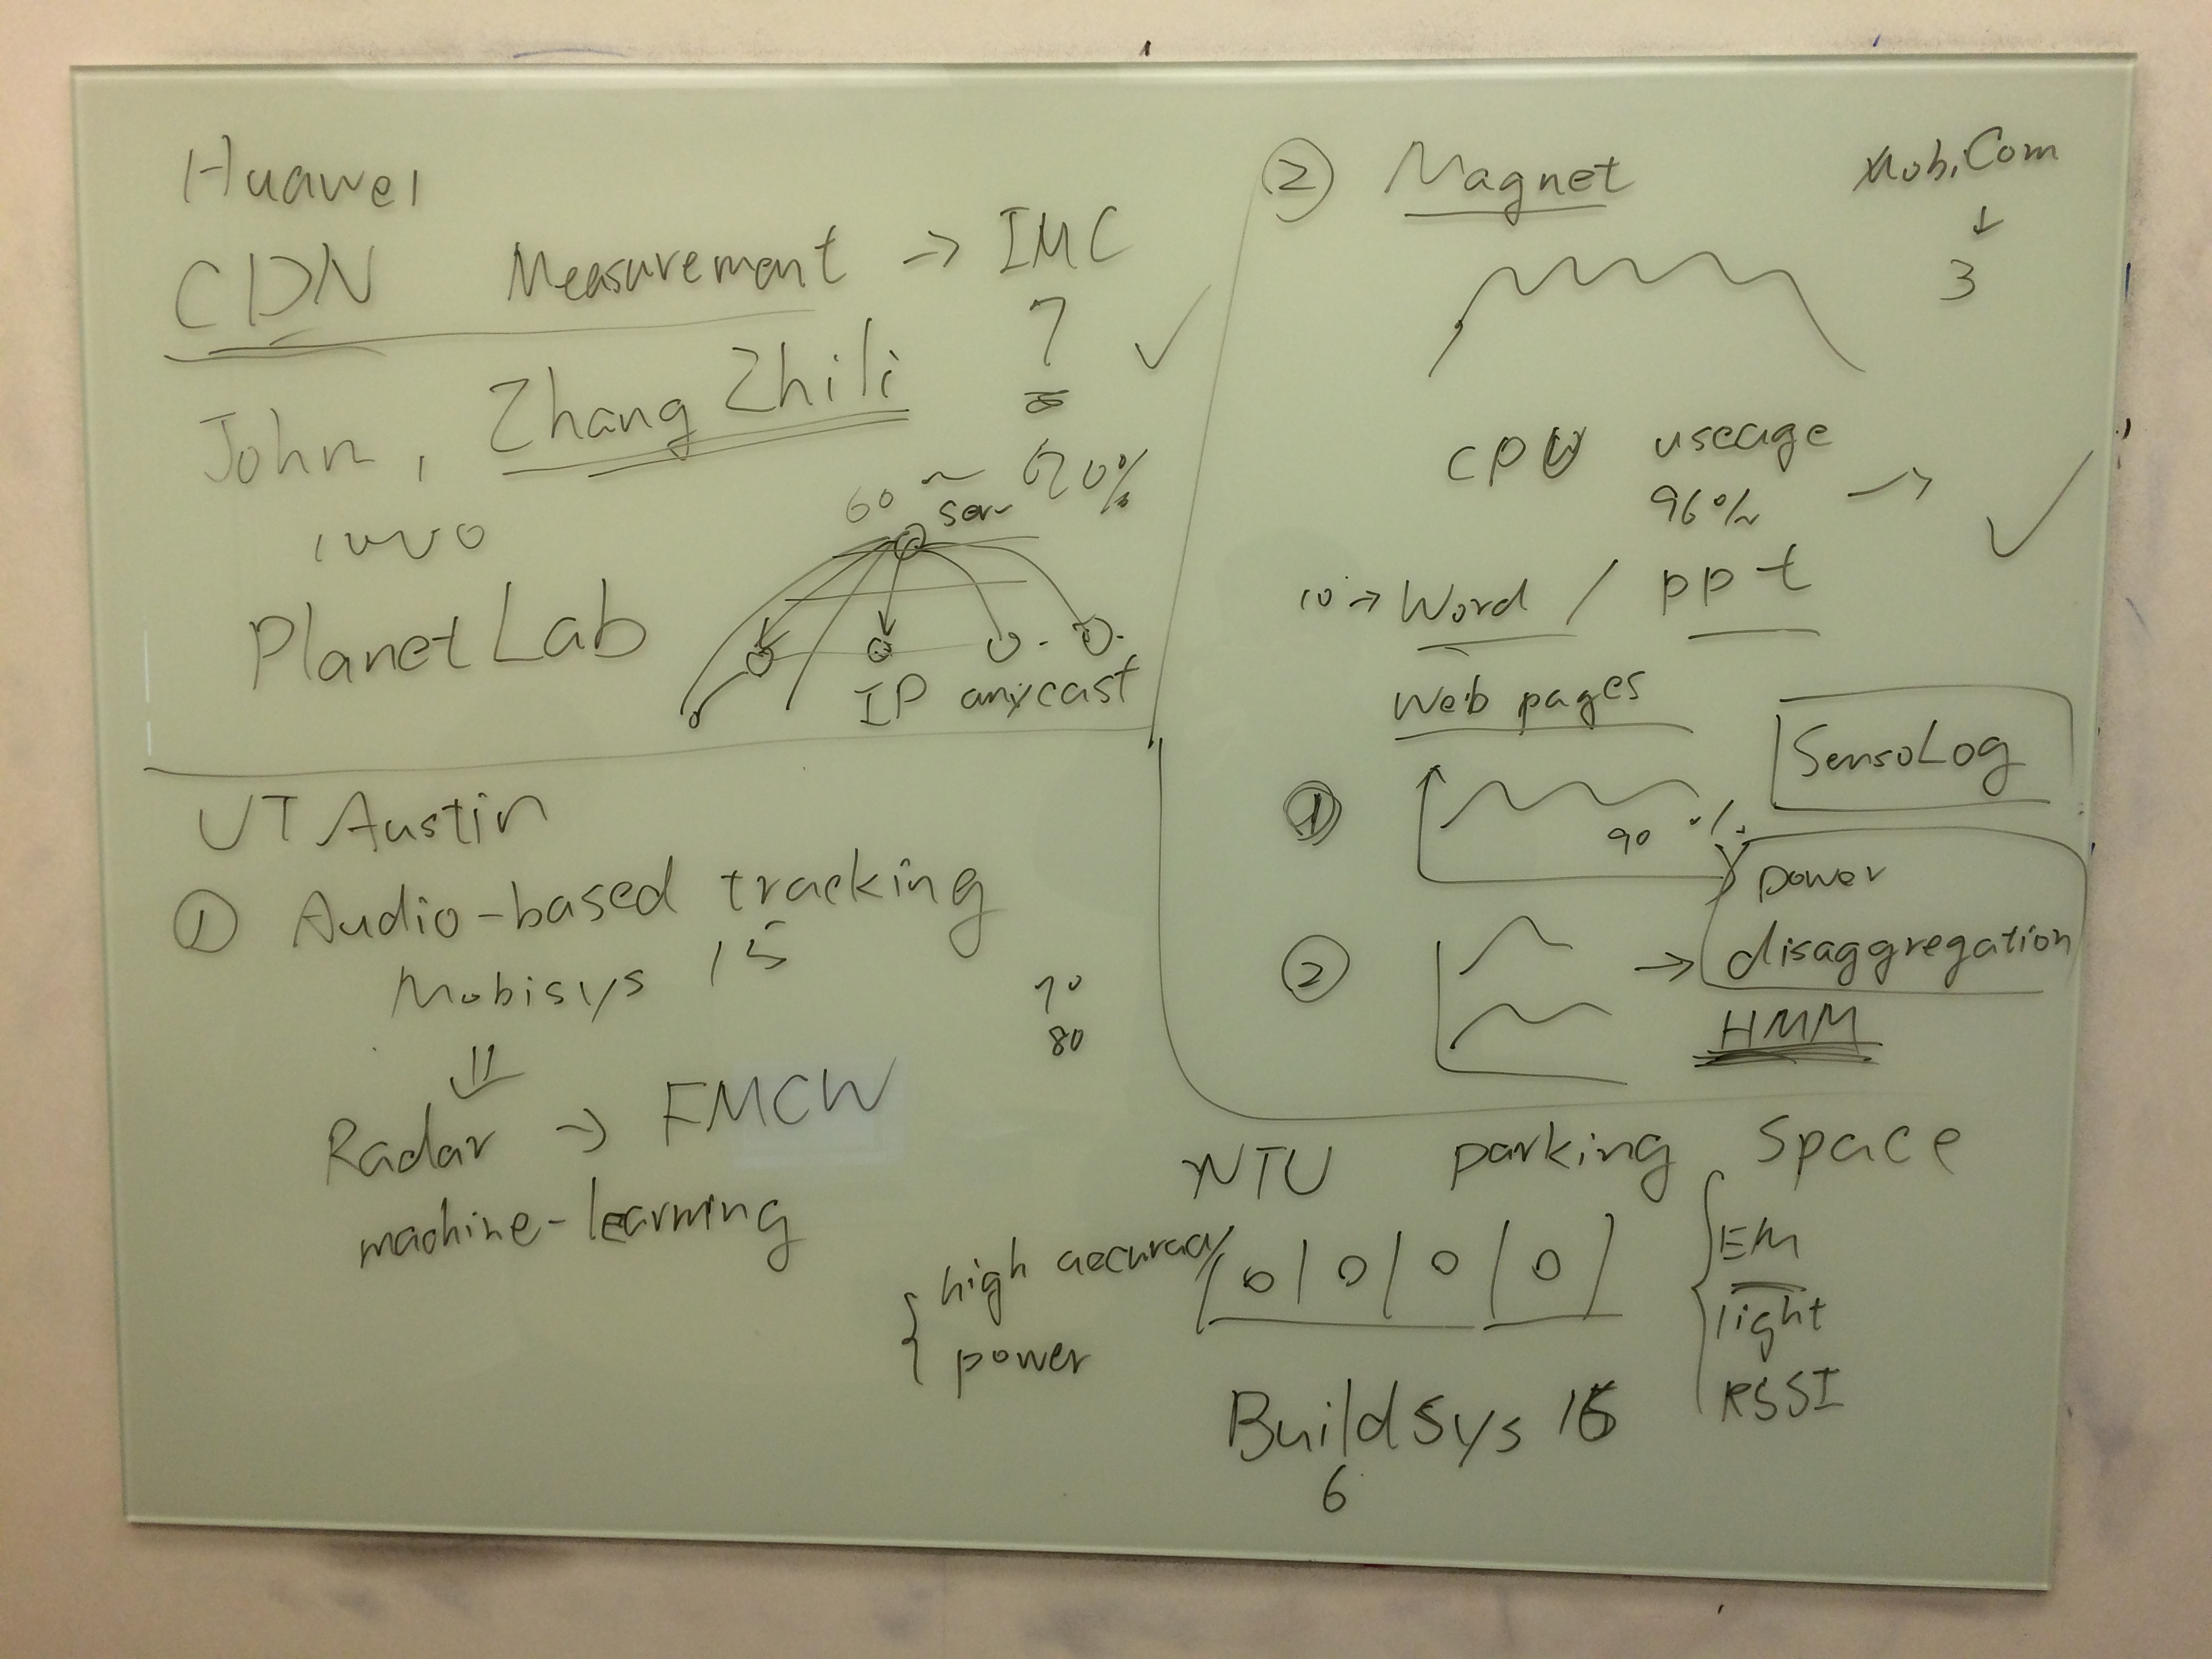 Huawei
CDN Measurement → IMC
7
John, Zhang Zhili
60 ~
ser
PlanetLab
IP anycast
UT Austin
① Audio-based tracking
Mobisys 15
70
80
Radar → FMCW
machine-learning
② Magnet
MobiCom
↓
3
CPU useage
96% →
10 → Word / ppt
Web pages
SensoLog
①
90 %
power
② → disaggregation
HMM
NTU parking Space
high accuracy
power
0 | 0 | 0 | 0
EM
light
RSSI
BuildSys 16
6